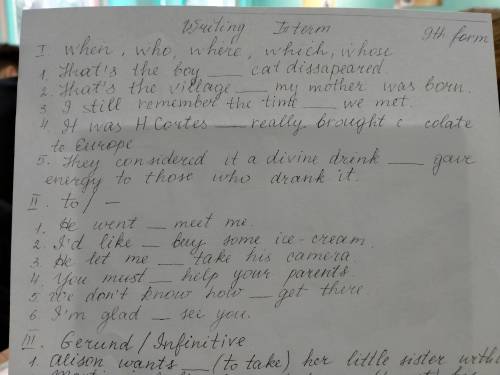 Writing I term 9th form
I. when, who, where, which, whose
1. That's the boy ___ cat dissapeared.
2. That's the village ___ my mother was born.
3. I still remember the time ___ we met.
4. It was H Cortes ___ really brought c colate
to Europe
5. They considered it a divine drink ___ gave
energy to those who drank it.
II. to / –
1. He went _ meet me.
2. I'd like _ buy some ice-cream.
3. He let me _ take his camera.
4. You must _ help your parents.
5. We don't know how _ get there.
6. I'm glad _ see you.
III. Gerund / Infinitive
1. Alison wants _ (to take) her little sister with